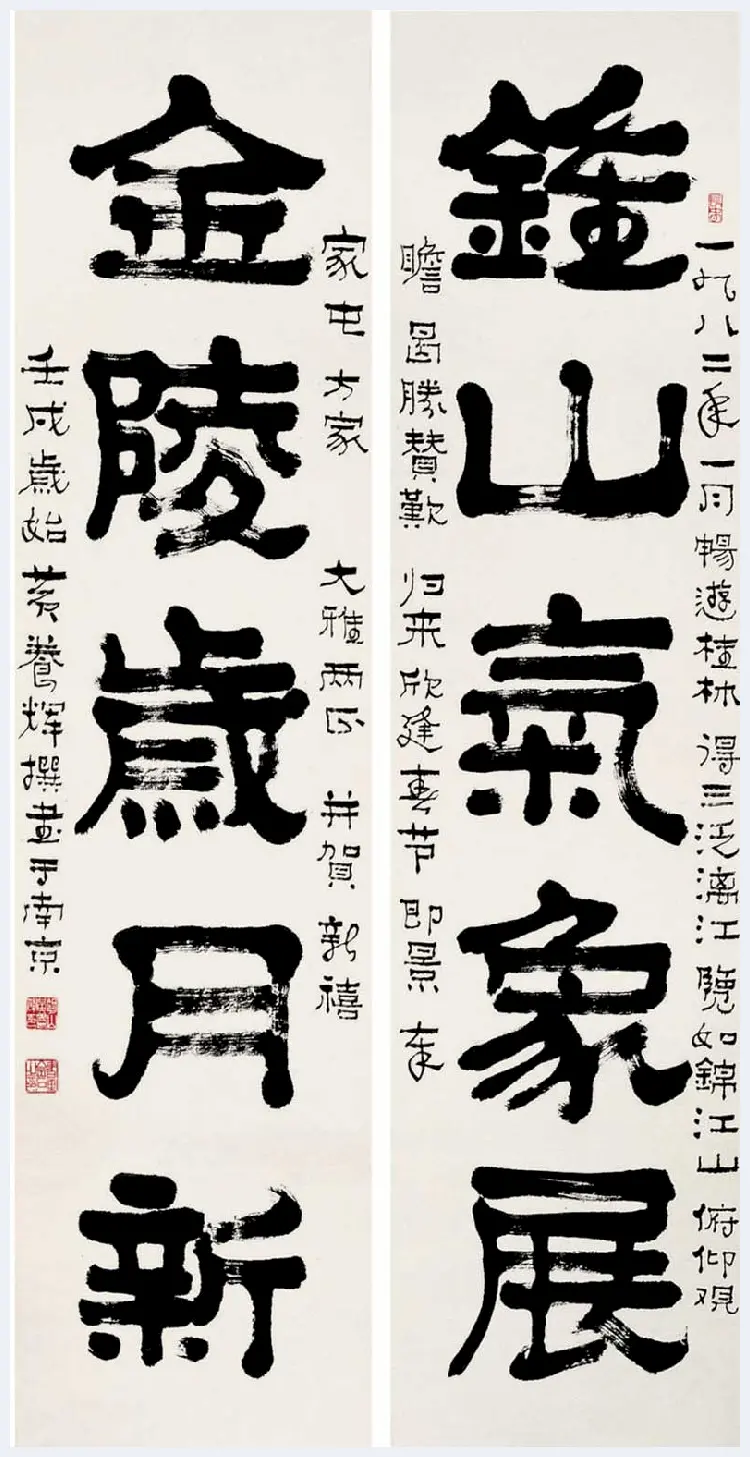 鍾山氣象展
金陵歲月新
一九八二年一月暢遊桂林得三泛漓江覽如錦江山俯仰观
瞻曷勝贊歎归来欣逢春节即景奉
家屯方家大雅两正并賀新禧
壬戌歲始黄養輝撰書于南京